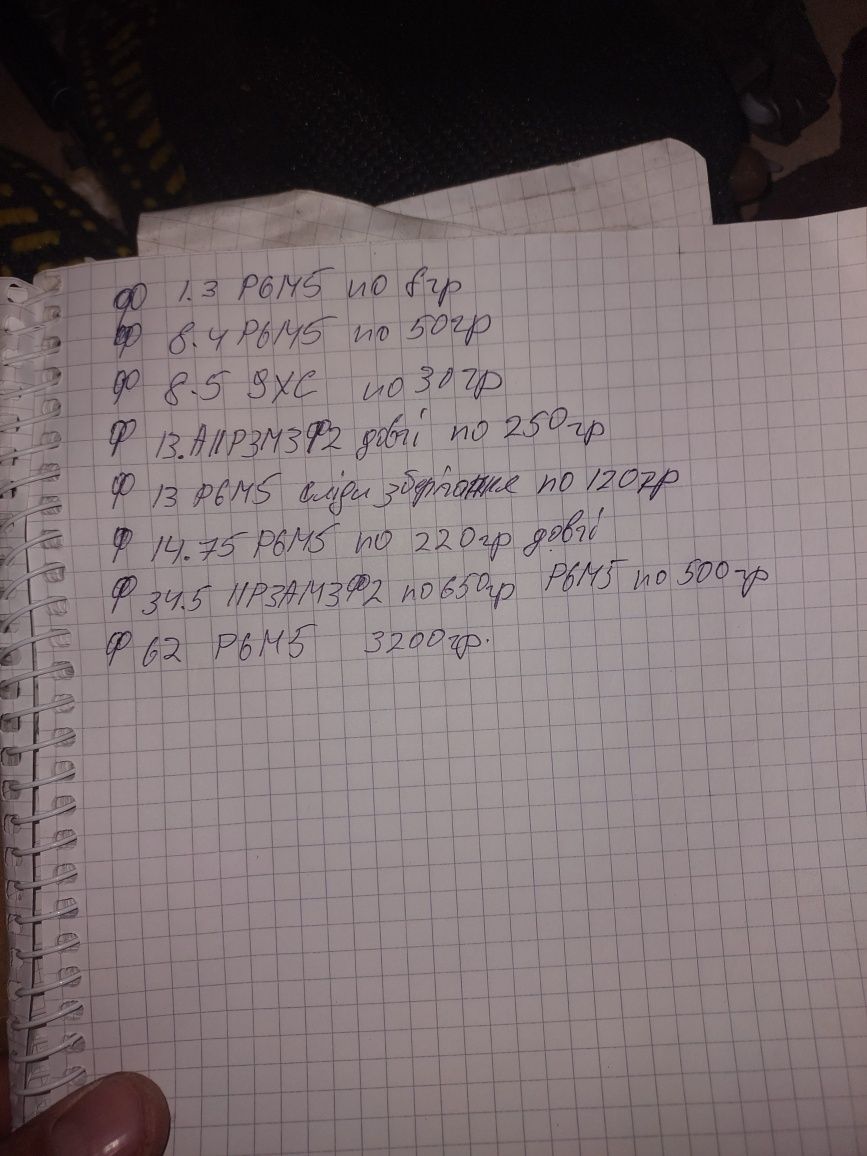 Ф 1.3 Р6М5 по 8гр
Ф 8.4 Р6М5 по 50гр
Ф 8.5 9ХС по 30гр
Ф 13. А11Р3М3Ф2 довгі по 250гр
Ф 13 Р6М5 сліди зберігання по 120гр
Ф 14.75 Р6М5 по 220гр довгі
Ф 34.5 11Р3АМ3Ф2 по 650гр Р6М5 по 500гр
Ф 62 Р6М5 3200гр.